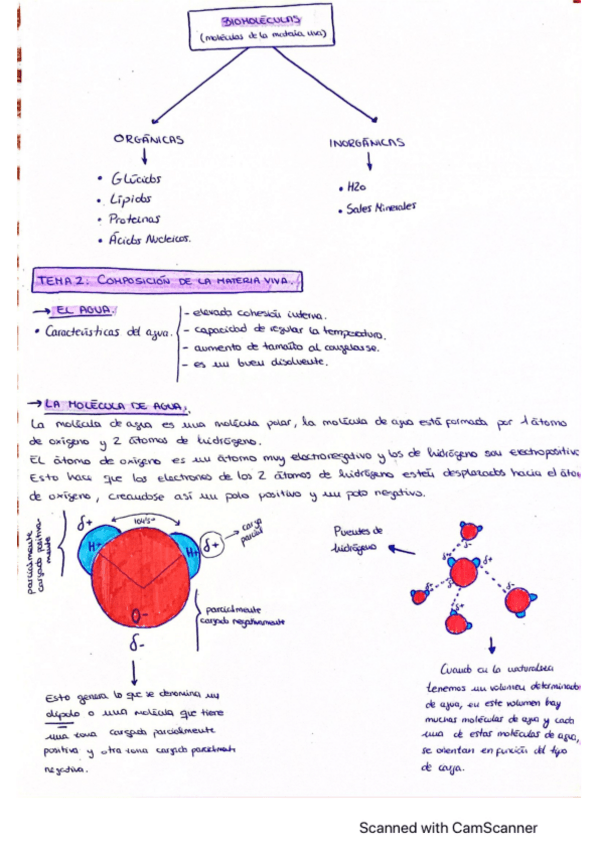 BIOMOLÉCULAS
(moléculas de la materia viva)
ORGÁNICAS
INORGÁNICAS
• Glúcidos
• Lípidos
• Proteínas
• Ácidos Nucleicos.
• H2O
• Sales Minerales
TEMA 2: COMPOSICIÓN DE LA MATERIA VIVA.
→ EL AGUA.
• Características del agua.
- elevada cohesión interna.
- capacidad de regular la temperatura.
- aumento de tamaño al congelarse.
- es un buen disolvente.
→ LA MOLÉCULA DE AGUA.
La molécula de agua es una molécula polar, la molécula de agua está formada por 1 átomo
de oxígeno y 2 átomos de hidrógeno.
EL átomo de oxígeno es un átomo muy electronegativo y los de hidrógeno son electropositivo
Esto hace que los electrones de los 2 átomos de hidrógeno estén desplazados hacia el áto
de oxígeno, creandose así un polo positivo y un polo negativo.
parcialmente
cargado positiva-
mente
δ+
H+
H+
δ+
carga
parcial
O-
δ-
parcialmente
cargado negativamente
Esto genera lo que se denomina un
dipolo o una molécula que tiene
una zona cargada parcialmente
positiva y otra zona cargada parcialmente
negativa.
Puentes de
hidrógeno
δ+
δ-
δ+
δ-
δ+
δ-
Cuando en la naturaleza
tenemos un volumen determinado
de agua, en este volumen hay
muchas moléculas de agua y cada
una de estas moléculas de agua,
se orientan en función del tipo
de carga.
Scanned with CamScanner